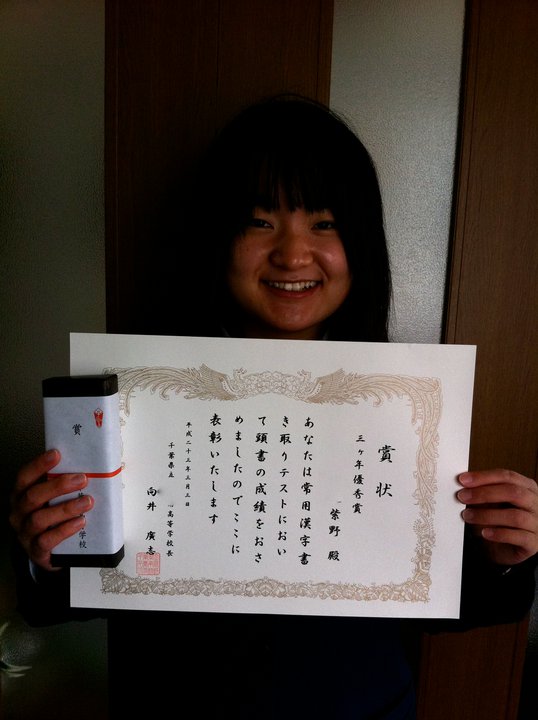 賞状
三ヶ年優秀賞
紫野 殿
あなたは常用漢字書
き取りテストにおい
て頭書の成績をおさ
めましたのでここに
表彰いたします
平成二十三年三月三日
千葉県立
高等学校長
向井 廣志
賞
学校